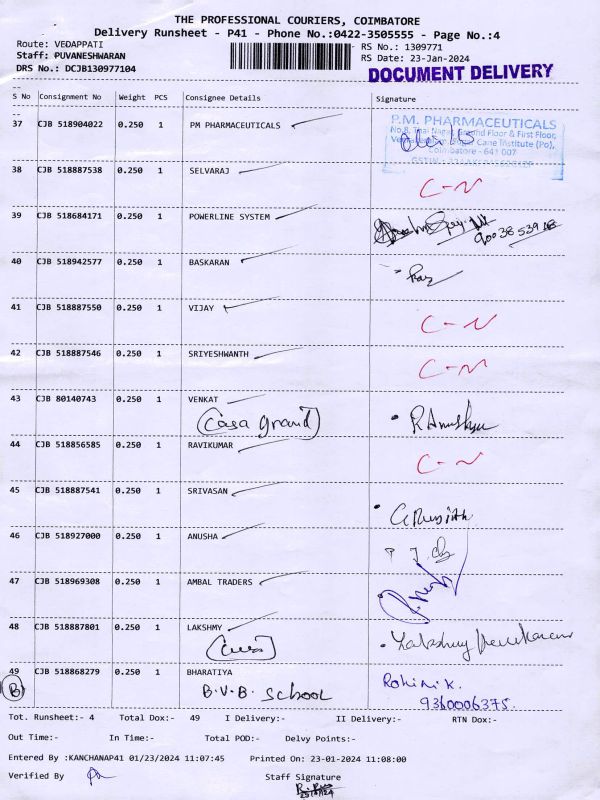 THE PROFESSIONAL COURIERS, COIMBATORE
Delivery Runsheet - P41 - Phone No.:0422-3505555 - Page No.:4
Route: VEDAPPATI
RS No.: 1309771
Staff: PUVANESHWARAN
RS Date: 23-Jan-2024
DRS No.: DCJB130977104
DOCUMENT DELIVERY
S No Consignment No Weight PCS Consignee Details Signature
37 CJB 518904022 0.250 1 PM PHARMACEUTICALS
P.M. PHARMACEUTICALS
Ground Floor & First Floor,
Cane Institute (Po),
Coimbatore - 641 007
38 CJB 518887538 0.250 1 SELVARAJ C-N
39 CJB 518684171 0.250 1 POWERLINE SYSTEM
40 CJB 518942577 0.250 1 BASKARAN
41 CJB 518887550 0.250 1 VIJAY C-N
42 CJB 518887546 0.250 1 SRIYESHWANTH C-N
43 CJB 80140743 0.250 1 VENKAT
(Casa grand)
44 CJB 518856585 0.250 1 RAVIKUMAR C-N
45 CJB 518887541 0.250 1 SRIVASAN
46 CJB 518927000 0.250 1 ANUSHA
47 CJB 518969308 0.250 1 AMBAL TRADERS
48 CJB 518887801 0.250 1 LAKSHMY
Lakshmy
49 CJB 518868279 0.250 1 BHARATIYA
B B.V.B. School Rohini K.
9360006375.
Tot. Runsheet:- 4 Total Dox:- 49 I Delivery:- II Delivery:- RTN Dox:-
Out Time:- In Time:- Total POD:- Delvy Points:-
Entered By :KANCHANAP41 01/23/2024 11:07:45 Printed On: 23-01-2024 11:08:00
Verified By Staff Signature